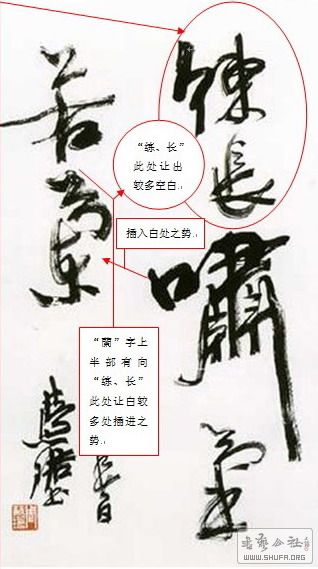 練長嘯氣
若蘭
“练、长”
此处让出
较多空白。
插入白处之势。
“蘭”字上
半部有向
“练、长”
此处让白较
多处插进之
势。
书艺公社
WWW.SHUFA.ORG